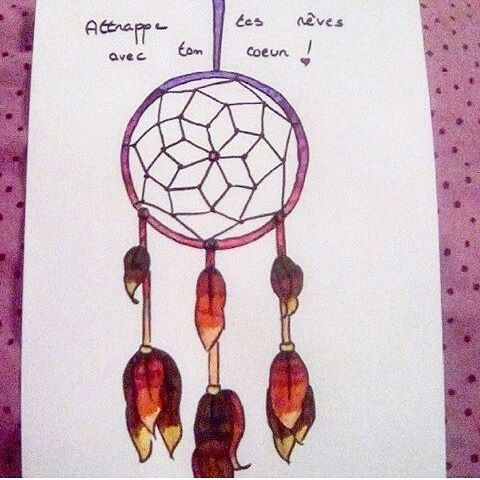 Attrappe tes rêves
avec ton coeur !